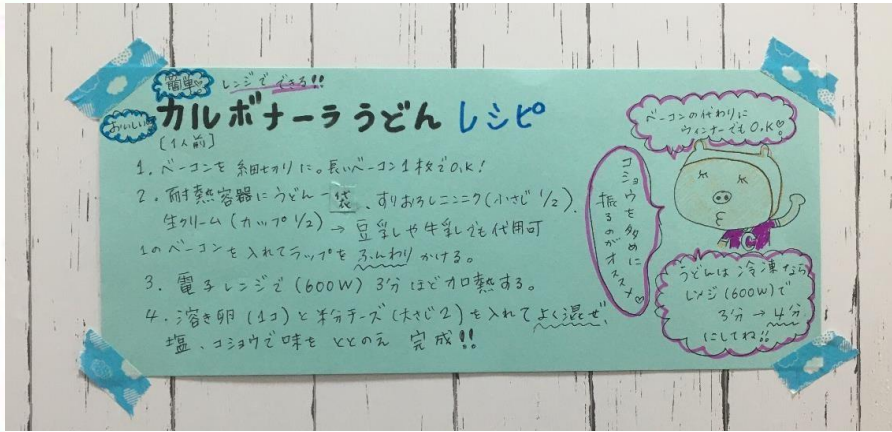 簡単♡ レンジでできる!!
おいしい♡ カルボナーラうどん レシピ
[1人前]
1. ベーコンを細切りに。長いベーコン1枚でO.K!
2. 耐熱容器にうどん一袋、すりおろしニンニク(小さじ1/2)、
生クリーム(カップ1/2) → 豆乳しや牛乳でも代用可
1のベーコンを入れてラップをふんわりかける。
3. 電子レンジで(600W) 3分ほど加熱する。
4. 溶き卵(1コ)と粉チーズ(大さじ2)を入れてよく混ぜ、
塩、コショウで味をととのえ 完成!!
ベーコンの代わりに
ウィンナーでもO.K♡
コショウを多めに
振るのがオススメ♡
C
うどんは冷凍なら
レンジ(600W)で
3分 → 4分
にしてね!!